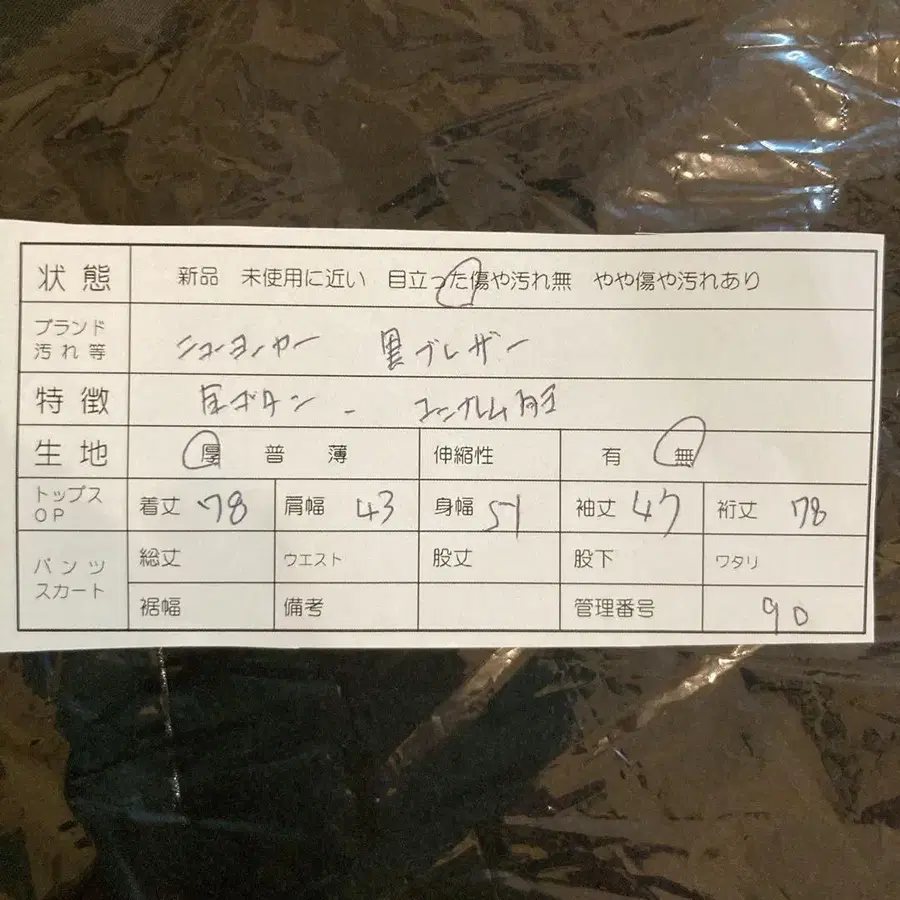 状態 新品 未使用に近い 目立った傷や汚れ無 やや傷や汚れあり
ブランド
汚れ等 ニューヨーカー 黒ブレザー
特徴 ボタン
生地 厚 普 薄 伸縮性 有 無
トップス
OP 着丈 78 肩幅 43 身幅 51 袖丈 47 裄丈 78
パンツ
スカート 総丈 ウエスト 股丈 股下 ワタリ
裾幅 備考 管理番号 90